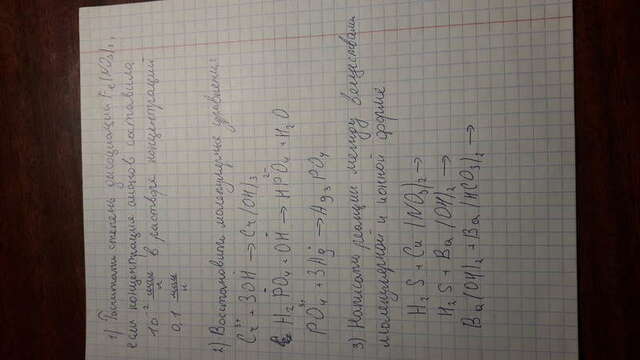 1) Посчитать степень диссоциации Fe(NO3)2,
если концентрация ионов составила
10⁻² моль/л в растворе концентрацией
0,1 моль/л
2) Восстановить молекулярные уравнения:
Cr³⁺ + 3OH⁻ → Cr(OH)3
H2PO4⁻ + OH⁻ → HPO4²⁻ + H2O
PO4³⁻ + 3Ag⁺ → Ag3PO4
3) Написать реакции между веществами
молекулярной и ионной форме
H2S + Cu(NO3)2 →
H2S + Ba(OH)2 →
Ba(OH)2 + Ba(HCO3)2 →